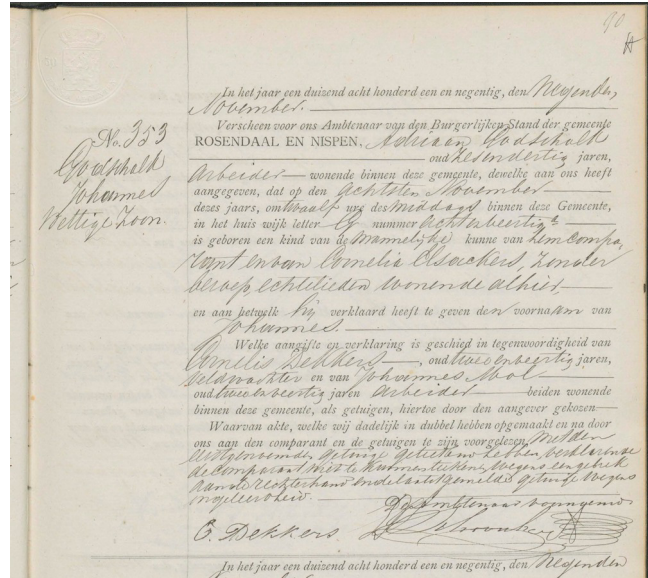 90
In het jaar een duizend acht honderd een en negentig, den Negenden
November.
Verscheen voor ons Ambtenaar van den Burgerlijken Stand der gemeente
ROSENDAAL EN NISPEN, Adriaan Godschalk
oud zesendertig jaren,
arbeider wonende binnen deze gemeente, dewelke aan ons heeft
aangegeven, dat op den achtsten November
dezes jaars, om twaalf ure des middags binnen deze Gemeente,
in het huis wijk letter nummer achtenveertig a
is geboren een kind van de Mannelijke kunne van hem compa,
rant en van Cornelia Elsackers, zonder
beroep, echtelieden wonende alhier,
en aan hetwelk hij verklaard heeft te geven den voornaam van
Johannes.
Welke aangifte en verklaring is geschied in tegenwoordigheid van
Cornelis Dekkers, oud twee en veertig jaren,
Veldwachter en van Johannes Mol
oud tweeenveertig jaren arbeider beiden wonende
binnen deze gemeente, als getuigen, hiertoe door den aangever gekozen
Waarvan akte, welke wij dadelijk in dubbel hebben opgemaakt en na door
ons aan den comparant en de getuigen te zijn voorgelezen, met den
eerstgenoemden getuige geteekend hebben, verklarende
de comparant niet te kunnen teekenen wegens een gebrek
aan de rechterhand en de laatstgemelde getuige wegens
ongeleerdheid.
De ambtenaar voornoemd
C. Dekkers.
No. 353
Godschalk
Johannes
Wettige Zoon.
In het jaar een duizend acht honderd een en negentig, den Negenden